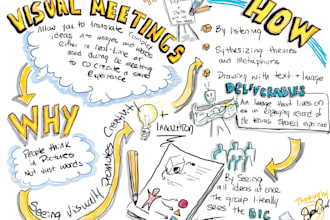 VISUAL MEETINGS
Allow you to translate complex
ideas into images and words
either in real-time or
used during the meeting
to co create a shared
Experience
WHY
People think
in Pictures
Not Just words
Seeing Visually
Promotes
Creativity
+ Innovation
HOW
By listening
Sythesizing themes
and Metaphors
Drawing with text + Image
DELIVERABLES
An Image that lives on
as an engaging record of
the teams shared experience
By Seeing
all ideas at once
The group literally
sees the BIG